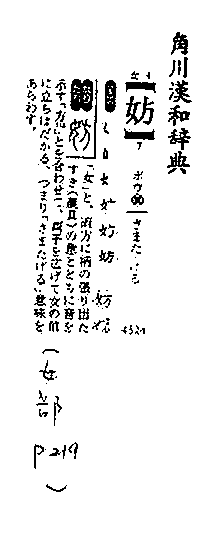 角川漢和辞典
女4
【妨】
7
ボウ
さまたげる
4321
く 女 女 女 妨 妨 妨
「女」と、両方に柄の張り出た
すき(農具)の象とともに音を
示す「方」とを合わせて、両手を広げて女の前
に立ちはだかる、つまり「さまたげる」意味を
あらわす。
(女部
P219
)